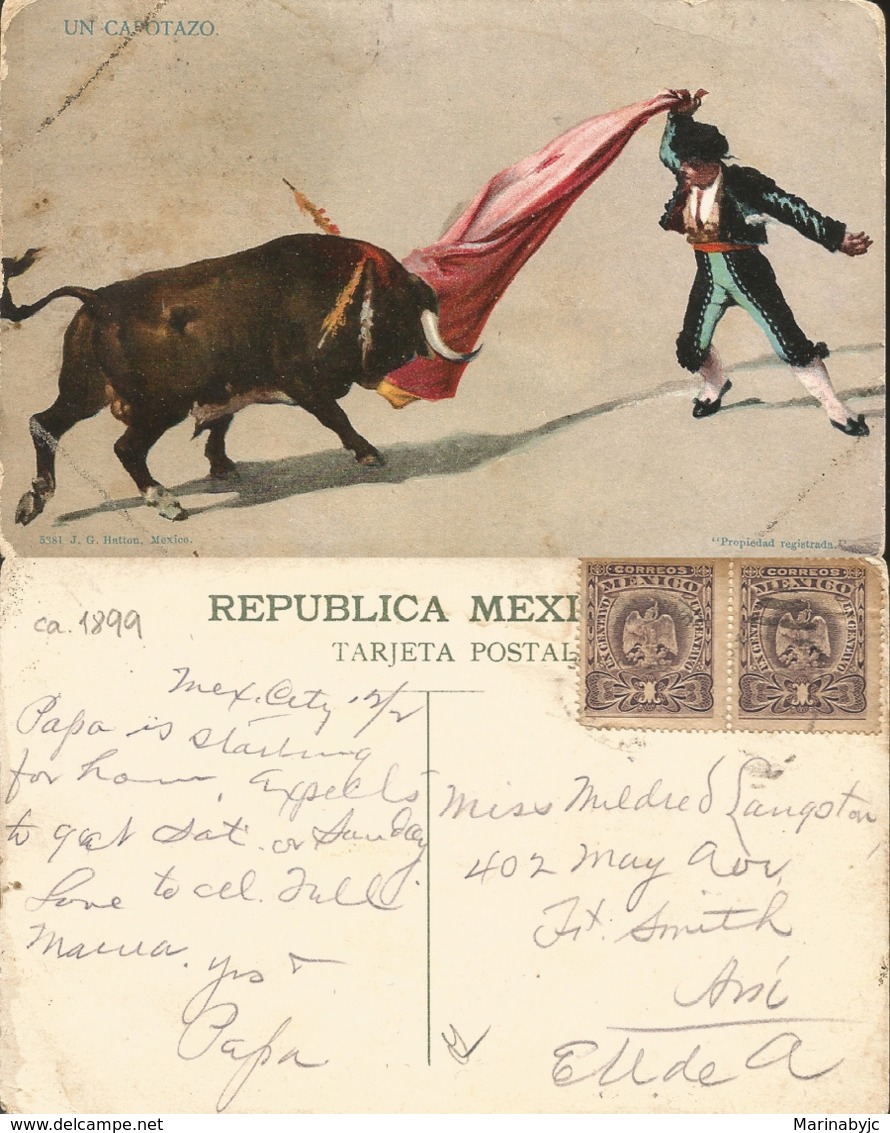 UN CAPOTAZO.
5381 J. G. Hatton, Mexico.
"Propiedad registrada."
ca. 1899
REPUBLICA MEXI
TARJETA POSTAL
CORREOS
MEXICO
UN CENTAVO
UN CENTAVO
CORREOS
MEXICO
UN CENTAVO
UN CENTAVO
Mex. City 12/2
Papa is starting
for home, expects
to get Sat. or Sunday
Love to all. Tell
Mama.
Papa
Miss Mildred Langston
402 May Ave
Ft. Smith
Ark
E U de A
Marinabyjc